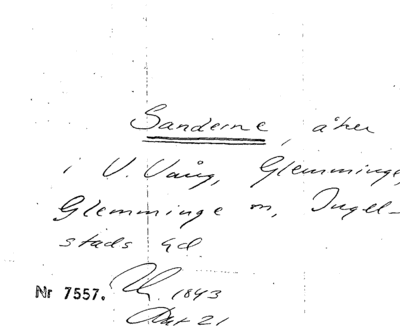 Sanderne, åker
i V. Vång, Glemminge,
Glemminge sn, Ingel-
stads hd.
Nr 7557. 1843
21